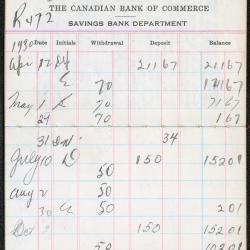 R472
THE CANADIAN BANK OF COMMERCE
SAVINGS BANK DEPARTMENT
1930 Date Initials Withdrawal Deposit Balance
Apr 12 21167 21167
E 70 14167
May 1 70 7167
24 70 167
31 Int. 34
July 10 D 150 15201
50
Aug 2 50
30 50 201
Oct 2 150 15201
50 10201